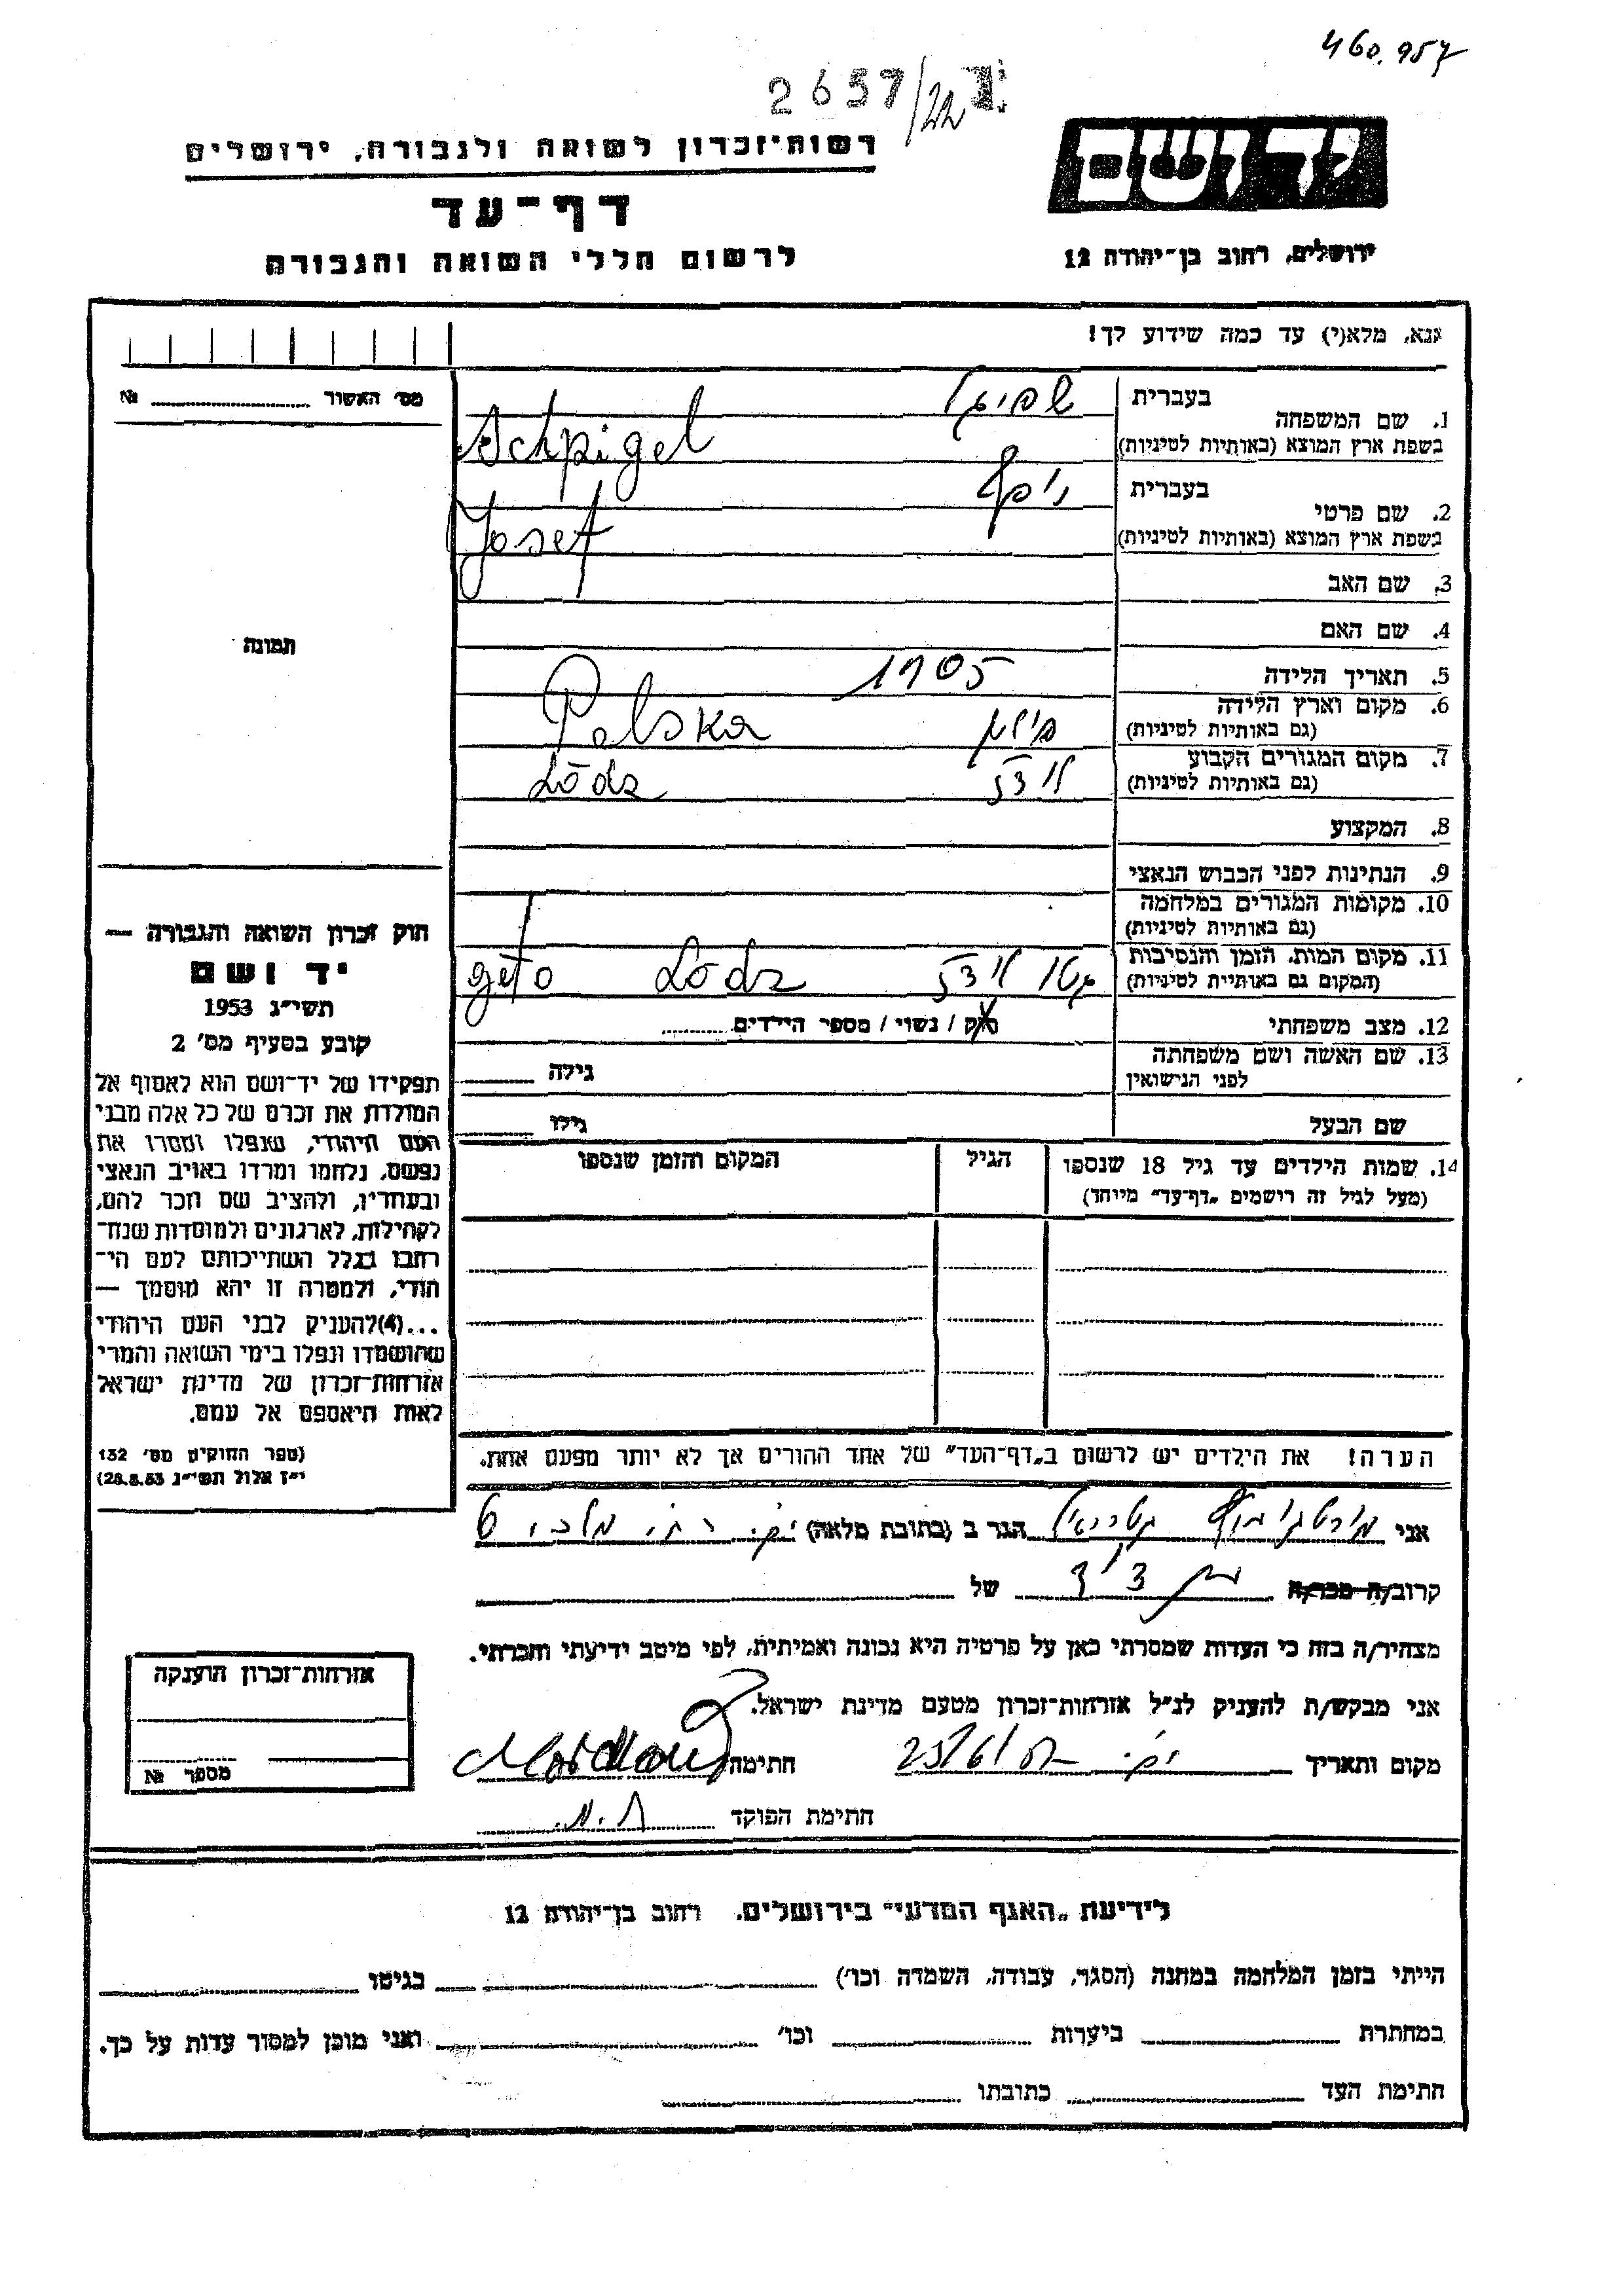 460.957
2657/22
רשות־זכרון לשואה ולגבורה, ירושלים
יד ושם
דף־עד
לרשום חללי השואה והגבורה
ירושלים, רחוב בן־יהודה 12
אנא, מלא(י) עד כמה שידוע לך!
מס' האשור № 
בעברית שפיגל
1. שם המשפחה
בשפת ארץ המוצא (באותיות לטיניות) Schpigel
בעברית יוסף
2. שם פרטי
בשפת ארץ המוצא (באותיות לטיניות) Josef
3. שם האב
4. שם האם
תמונה
5. תאריך הלידה 1905
6. מקום וארץ הלידה
(גם באותיות לטיניות) פולין Polska
7. מקום המגורים הקבוע
(גם באותיות לטיניות) לודז Lódz
8. המקצוע
9. הנתינות לפני הכבוש הנאצי
10. מקומות המגורים במלחמה
(גם באותיות לטיניות)
11. מקום המות, הזמן והנסיבות
(המקום גם באותיות לטיניות) גטו לודז Lodz geto
12. מצב משפחתי רוק / נשוי / מספר הילדים
13. שם האשה ושם משפחתה
לפני הנישואין גילה
שם הבעל גילו
14. שמות הילדים עד גיל 18 שנספו הגיל המקום והזמן שנספו
(מעל לגיל זה רושמים „דף־עד" מיוחד)
חוק זכרון השואה והגבורה —
יד ושם
תשי״ג 1953
קובע בסעיף מס' 2
תפקידו של יד־ושם הוא לאסוף אל
המולדת את זכרם של כל אלה מבני
העם היהודי, שנפלו ומסרו את
נפשם, נלחמו ומרדו באויב הנאצי
ובעוזריו, ולהציב שם וזכר להם,
לקהילות, לארגונים ולמוסדות שנח־
רבו בגלל השתייכותם לעם הי־
הודי, ולמטרה זו יהא מוסמך —
...(4)להעניק לבני העם היהודי
שהושמדו ונפלו בימי השואה והמרי
אזרחות־זכרון של מדינת ישראל
לאות היאספם אל עמם.
(ספר החוקים מס' 132
י״ז אלול תשי״ג 28.8.53)
הערה! את הילדים יש לרשום ב„דף־העד" של אחד ההורים אך לא יותר מפעם אחת.
אני הגר ב (כתובת מלאה)
קרוב/ה מכר/ה בן דוד של
מצהיר/ה בזה כי העדות שמסרתי כאן על פרטיה היא נכונה ואמיתית, לפי מיטב ידיעתי והכרתי.
אני מבקש/ת להעניק לנ״ל אזרחות־זכרון מטעם מדינת ישראל.
מקום ותאריך חתימה
חתימת הפוקד
אזרחות־זכרון הוענקה
מספר №
לידיעת „האגף המדעי" בירושלים, רחוב בן־יהודה 12
הייתי בזמן המלחמה במחנה (הסגר, עבודה, השמדה וכו') בגיטו
במחתרת ביערות וכו' ואני מוכן למסור עדות על כך.
חתימת העד כתובתו